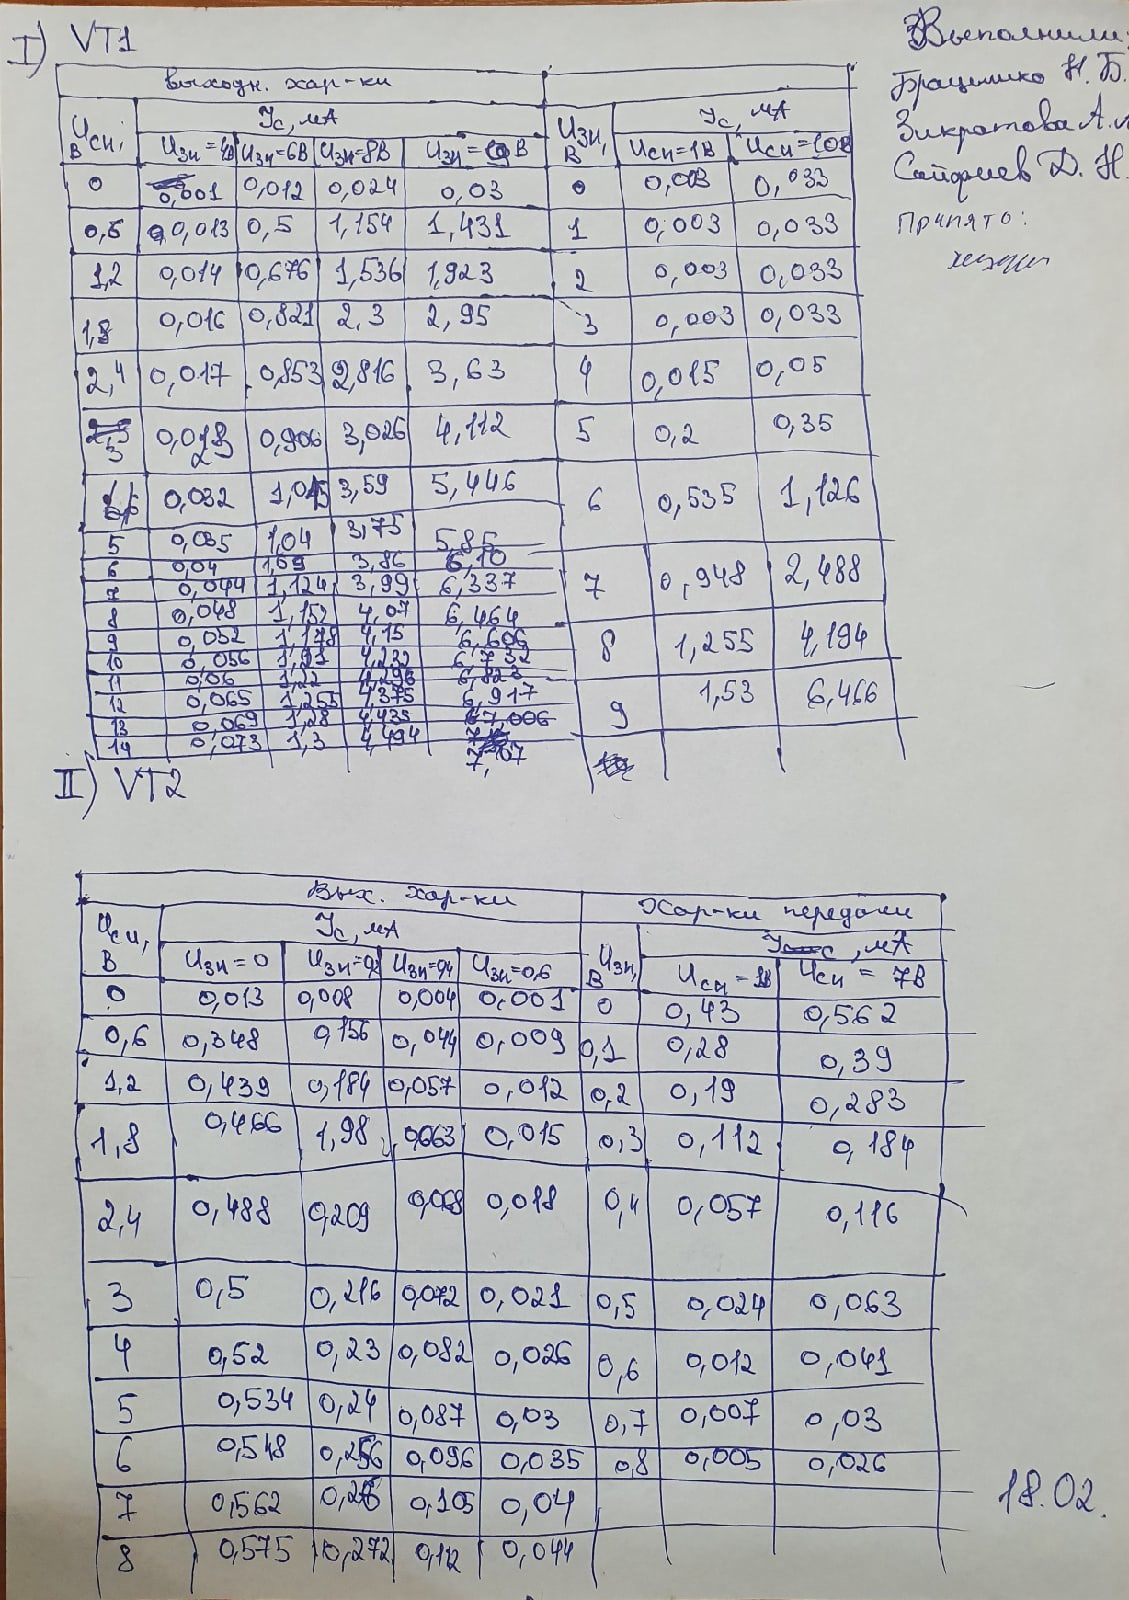 I) VT1
Выполнили:
Н. Б.
Зикратова А.
Сайфиев Д. Н.
Принято:
выходн. хар-ки
Uси, В | Iс, мА | Uзи, В | Iс, мА
Uзи=4В | Uзи=6В | Uзи=8В | Uзи=10В | Uси=1В | Uси=10В
0 | 0,001 | 0,012 | 0,024 | 0,03 | 0 | 0,003 | 0,033
0,6 | 0,013 | 0,5 | 1,154 | 1,431 | 1 | 0,003 | 0,033
1,2 | 0,014 | 0,676 | 1,536 | 1,923 | 2 | 0,003 | 0,033
1,8 | 0,016 | 0,821 | 2,3 | 2,95 | 3 | 0,003 | 0,033
2,4 | 0,017 | 0,853 | 2,816 | 3,63 | 4 | 0,015 | 0,05
3 | 0,906 | 3,026 | 4,112 | 5 | 0,2 | 0,35
0,032 | 3,59 | 5,446 | 6 | 0,535 | 1,126
5 | 0,035 | 1,04 | 3,75 | 5,85
6 | 0,04 | 1,09 | 3,86 | 6,10
7 | 0,044 | 1,124 | 3,99 | 6,337 | 7 | 0,948 | 2,488
8 | 0,048 | 1,152 | 4,07 | 6,464
9 | 0,052 | 1,178 | 4,15 | 6,606 | 8 | 1,255 | 4,194
10 | 0,056 | 1,21 | 4,232 | 6,732
11 | 0,06 | 1,22 | 4,296 | 6,823
12 | 0,065 | 1,255 | 4,375 | 6,917 | 9 | 1,53 | 6,466
13 | 0,069 | 1,28 | 4,435 | 7,006
14 | 0,073 | 1,3 | 4,494 | 7,07
II) VT2
Вых. хар-ки | Хар-ки передачи
Uси, В | Iс, мА | Uзи, В | Iс, мА
Uзи=0 | Uзи=0,2 | Uзи=0,4 | Uзи=0,6 | Uси=1В | Uси = 7В
0 | 0,013 | 0,008 | 0,004 | 0,001 | 0 | 0,43 | 0,562
0,6 | 0,348 | 0,156 | 0,044 | 0,009 | 0,1 | 0,28 | 0,39
1,2 | 0,439 | 0,184 | 0,057 | 0,012 | 0,2 | 0,19 | 0,283
1,8 | 0,466 | 1,98 | 0,063 | 0,015 | 0,3 | 0,112 | 0,184
2,4 | 0,488 | 0,209 | 0,068 | 0,018 | 0,4 | 0,057 | 0,116
3 | 0,5 | 0,216 | 0,072 | 0,021 | 0,5 | 0,024 | 0,063
4 | 0,52 | 0,23 | 0,082 | 0,026 | 0,6 | 0,012 | 0,041
5 | 0,534 | 0,24 | 0,087 | 0,03 | 0,7 | 0,007 | 0,03
6 | 0,548 | 0,256 | 0,096 | 0,035 | 0,8 | 0,005 | 0,026
7 | 0,562 | 0,105 | 0,04
8 | 0,575 | 0,272 | 0,112 | 0,044
18.02.